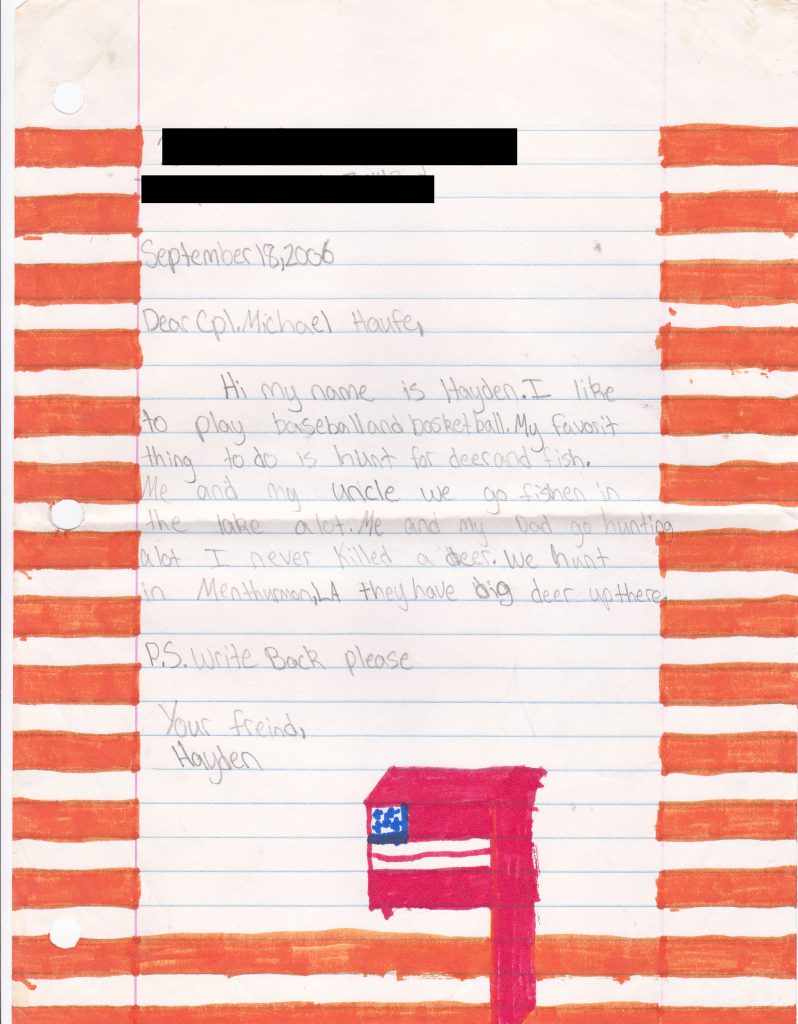 September 18, 2006
Dear Cpl. Michael Haufe,
Hi my name is Hayden. I like
to play baseball and basketball. My favorit
thing to do is hunt for deer and fish.
Me and my uncle we go fishen in
the lake alot. Me and my Dad go hunting
alot I never killed a deer. We hunt
in Menthurman, LA they have big deer up there.
P.S. Write Back please
Your freind,
Hayden